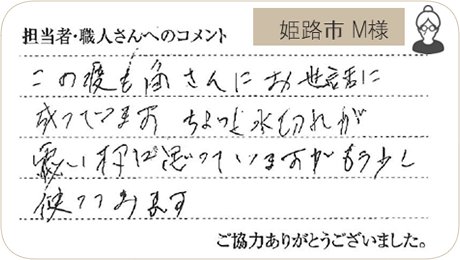 担当者・職人さんへのコメント
姫路市 M様
この度も角さんにお世話に
成っています ちょっと水切れが
悪い様に思っていますがもう少し
使ってみます
ご協力ありがとうございました。